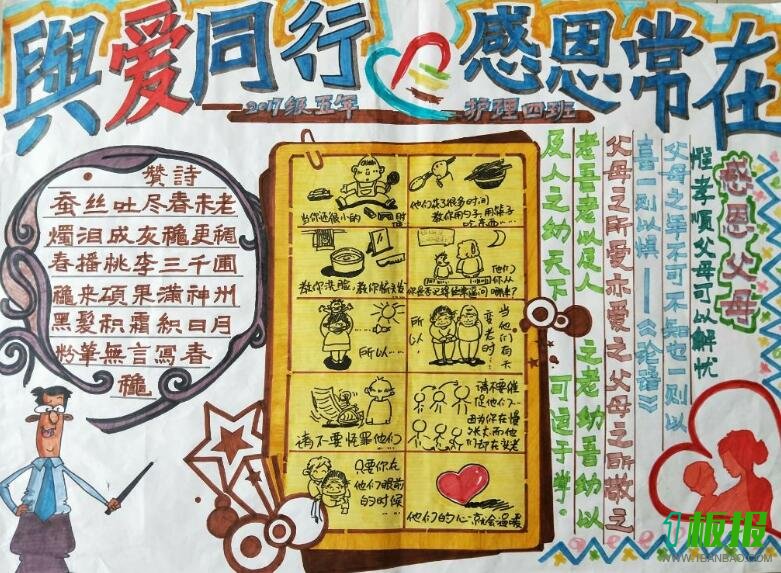 與爱同行 感恩常在
2017级五年 护理四班
赞詩
蚕丝吐尽春未老
燭泪成灰穐更稠
春播桃李三千圃
穐来碩果滿神州
黑髮积霜织日月
粉筆無言寫春
穐
当你还很小的时候
他们花了很多时间
教你用勺子,用筷子
吃东西……
教你洗脸,教你梳头发
他们
你从
哪来?
所以……
当他们有天
变老时
请不要怪罪他们
请不要催
促他们…
因为你在慢
慢长大而他
们却在变老
只要你在
他们眼前
的时候…
他们的心就会温暖
老吾老以及人之老幼吾幼以
及人之幼天下可运于掌。
父母之所爱亦爱之父母之所敬之
喜一则以惧——《论语》
父母之年不可不知也一则以
惟孝順父母可以解忧
感恩父母
1板报
WWW.1BANBAO.COM